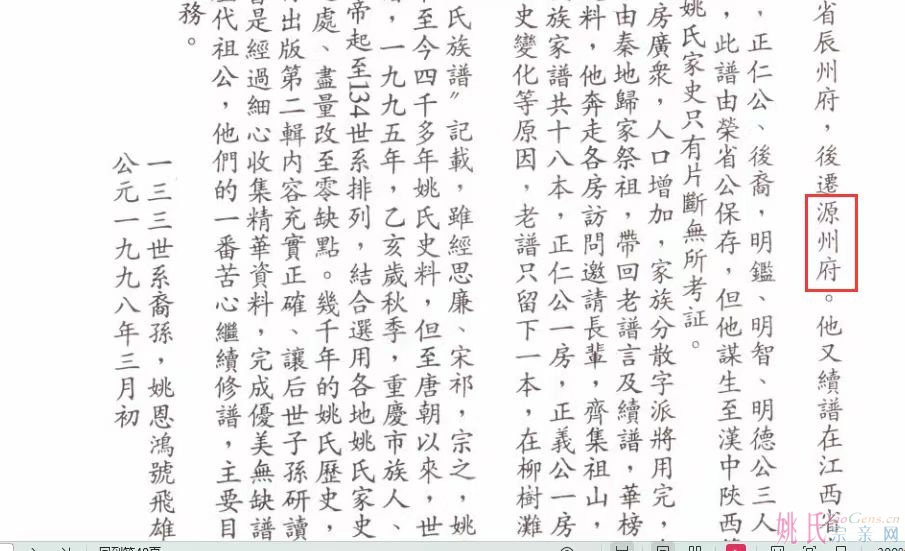 省辰州府，後遷源州府。他又續譜在江西省
，正仁公、後裔，明鑑、明智、明德公三人
，此譜由榮省公保存，但他謀生至漢中陝西
姚氏家史只有片斷無所考証。
房廣衆，人口增加，家族分散字派將用完，
由秦地歸家祭祖，帶回老譜言及續譜，華榜
料，他奔走各房訪問邀請長輩，齊集祖山，
族家譜共十八本，正仁公一房，正義公一房
史變化等原因，老譜只留下一本，在柳樹灘
氏族譜〞記載，雖經思廉、宋祁，宗之，姚
至今四千多年姚氏史料，但至唐朝以來，世
，一九九五年，乙亥歲秋季，重慶市族人、
帝起至134世系排列，結合選用各地姚氏家史
處、盡量改至零缺點。幾千年的姚氏歷史，
出版第二輯内容充實正確、讓后世子孫研讀
是經過細心收集精華資料，完成優美無缺譜
代祖公，他們的一番苦心繼續修譜，主要目
務。
一三三世系裔孫，姚恩鴻號飛雄
公元一九九八年三月初
姚氏宗亲网
YaoGens.cn